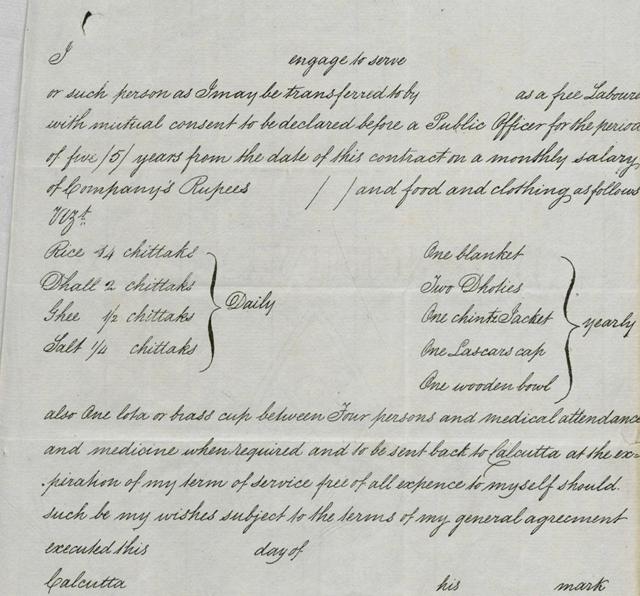 I engage to serve
or such person as I may be transferred to by as a free Laboure
with mutual consent to be declared before a Public Officer for the period
of five /5/ years from the date of this contract on a monthly salary
of Company's Rupees / / and food and clothing as follows
Vizt
Rice 14 chittaks
Dhall 2 chittaks
Ghee 1/2 chittaks
Salt 1/4 chittaks
Daily
One blanket
Two Dhoties
One chintz Jacket
One Lascars cap
One wooden bowl
yearly
also One lota or brass cup between Four persons and medical attendance
and medicine when required and to be sent back to Calcutta at the ex=
piration of my term of service free of all expence to myself should
such be my wishes subject to the terms of my general agreement
executed this day of
Calcutta his mark